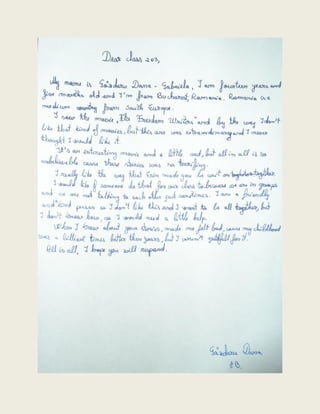 Dear class 203,
My name is Găsdaru Dana-Gabriela, I am fourteen years and
five months old and I'm from Bucharest, Romania. Romania is a
medium country from South Europe.
I saw the movie, "The Freedom Writers" and by the way I don't
like that kind of movies, but this one was extraordinary and I never
thought I would like it.
It's an interesting movie and a little sad, but all in all is so
unbelievable cause those stories were so terrifing.
I really like the way that Erin made you be court on together together.
I would like if someone do that for our class to because we are in groups
and we are not talking to each other just sometimes. I am a friendly
and kind person so I don't like this and I want to be all together, but
I don't know how, so I would need a little help.
When I knew about your stories, made me felt bad, cause my childhood
was a billiant times bitter then yours, but I wasn't gratefull for it."
All in all, I hope you will respond.
Găsdaru Dana